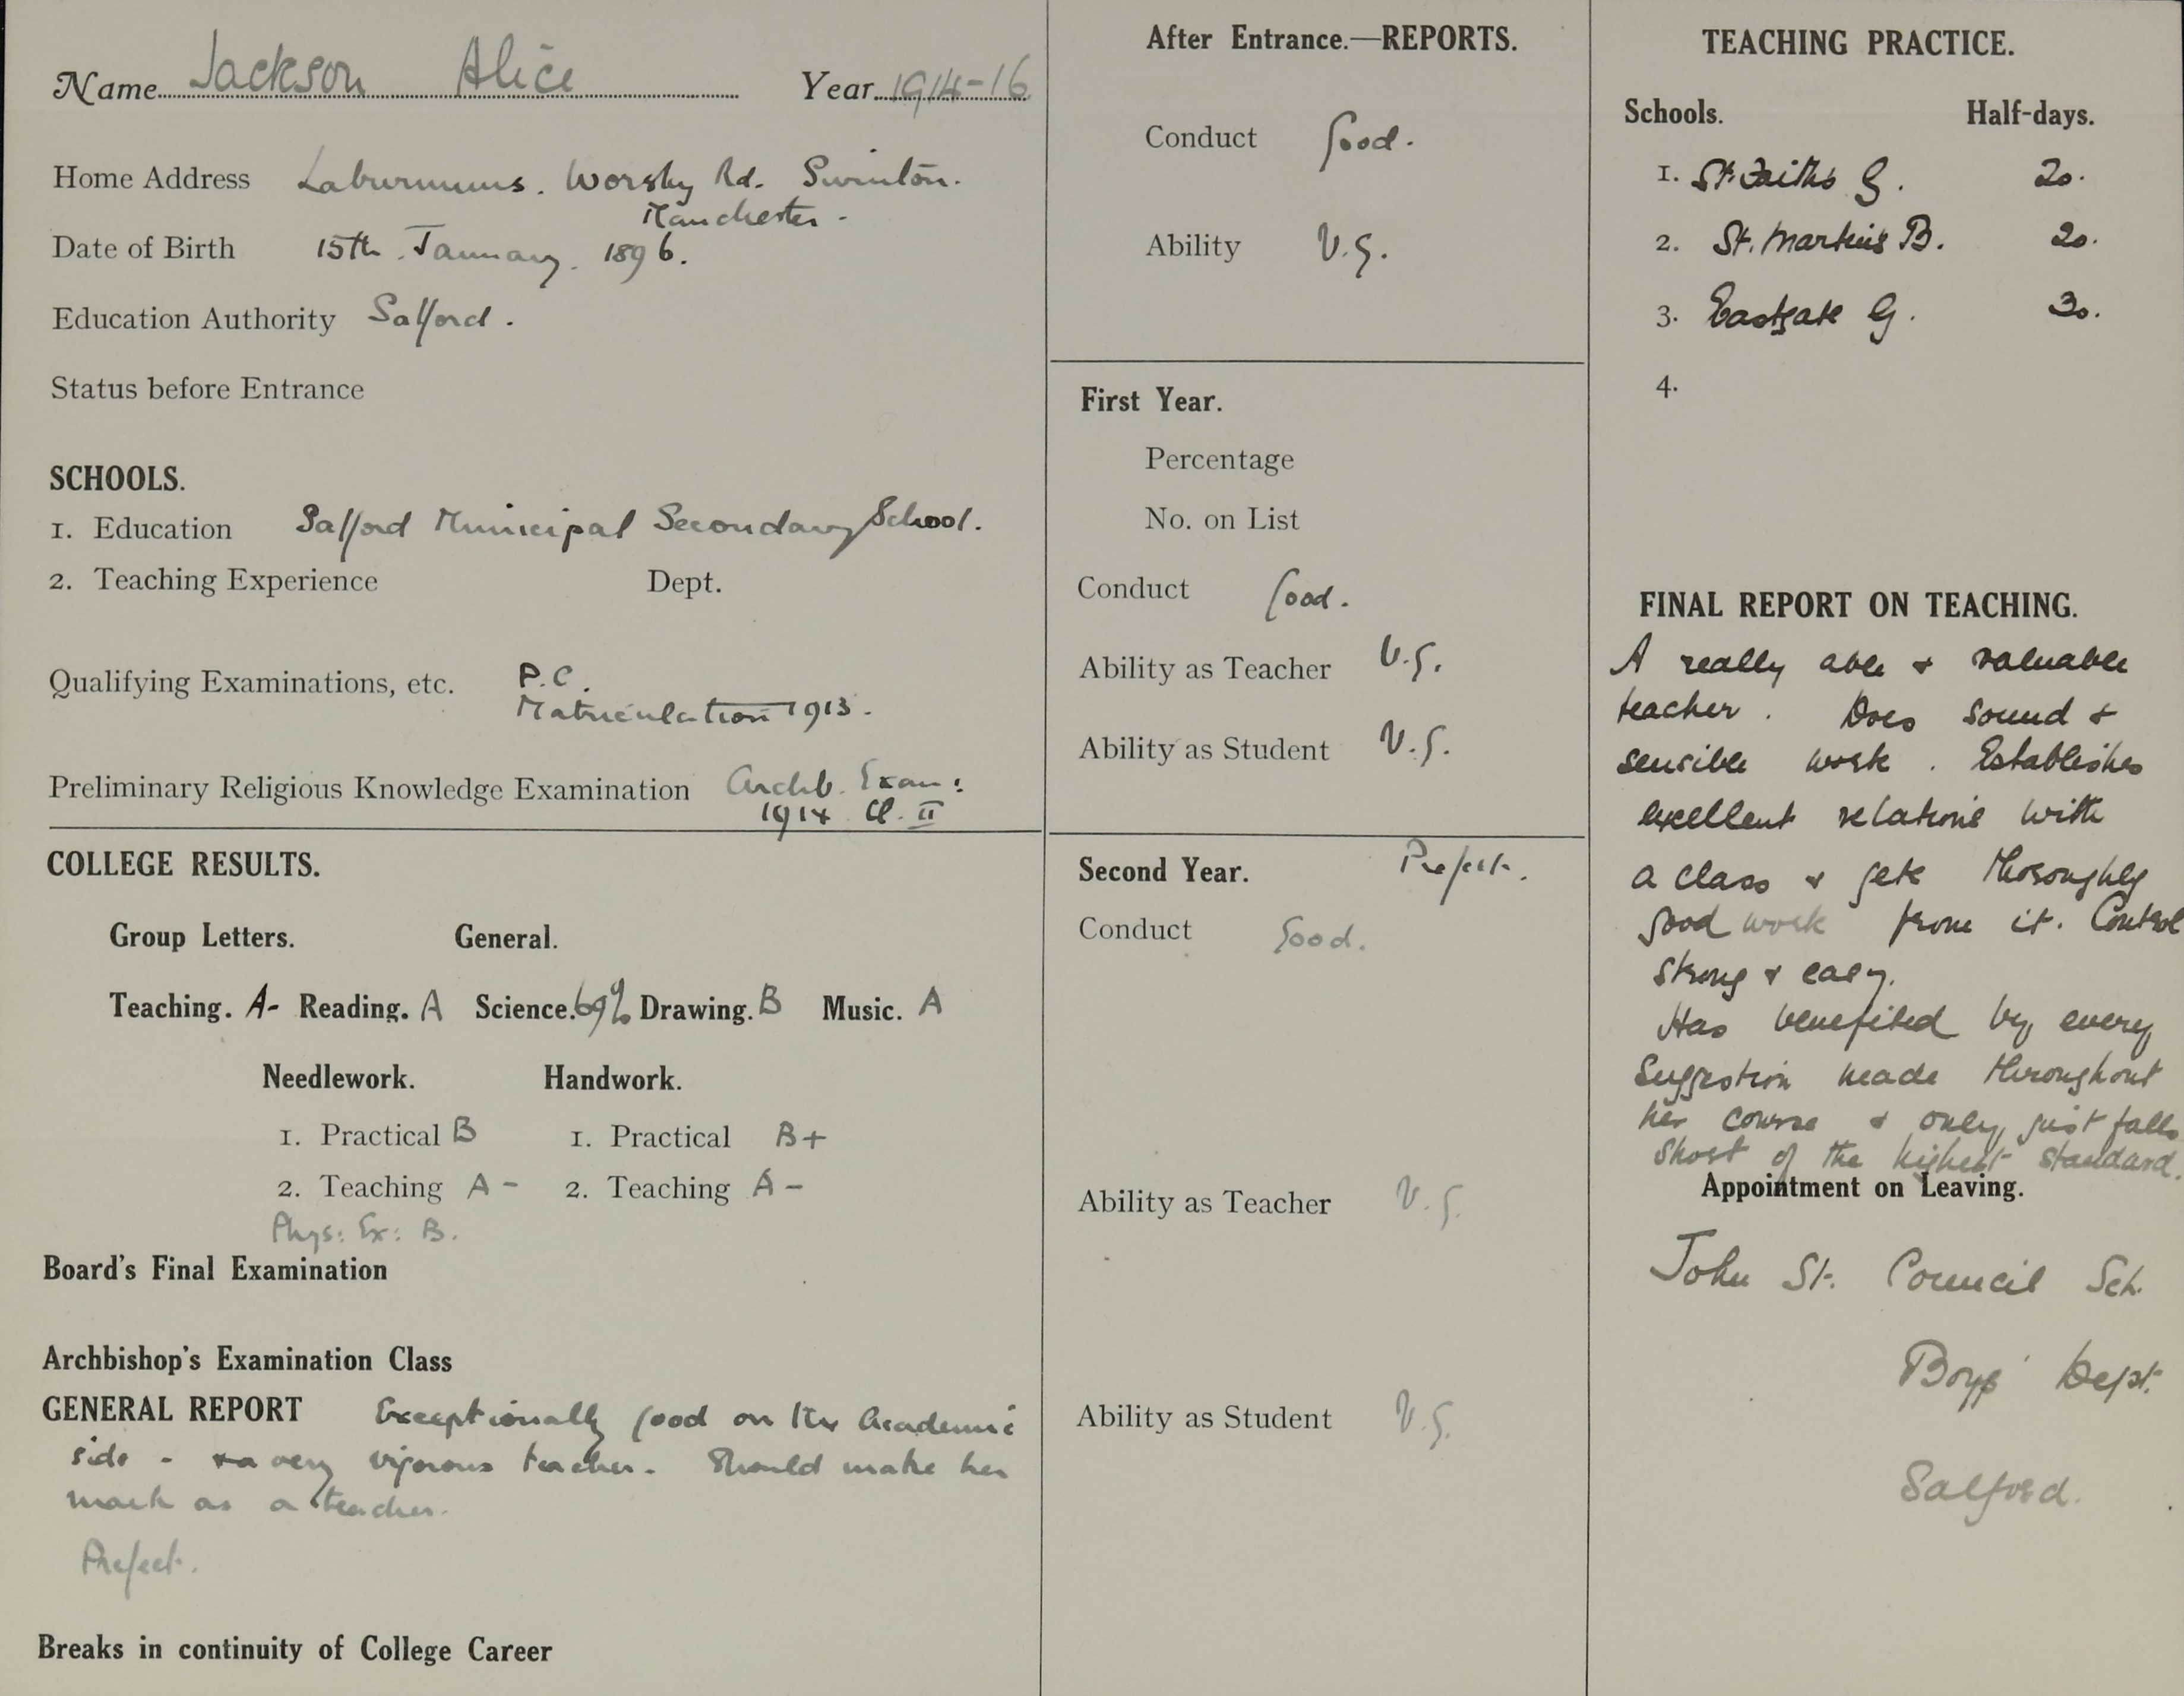 Name Jackson Alice Year 1914-16
Home Address Laburnums. Worsley Rd. Swinton.
Manchester.
Date of Birth 15th January. 1896.
Education Authority Salford.
Status before Entrance
SCHOOLS.
1. Education Salford Municipal Secondary School.
2. Teaching Experience Dept.
Qualifying Examinations, etc. P.C.
Matriculation 1913.
Preliminary Religious Knowledge Examination Archb. Exam:
1914 Cl. II
COLLEGE RESULTS.
Group Letters. General.
Teaching. A- Reading. A Science. 69% Drawing. B Music. A
Needlework. Handwork.
1. Practical B 1. Practical B+
2. Teaching A- 2. Teaching A-
Phys: Ex: B.
Board's Final Examination
Archbishop's Examination Class
GENERAL REPORT Exceptionally good on the Academic
side - & a very vigorous teacher. Should make her
mark as a teacher.
Prefect.
Breaks in continuity of College Career
After Entrance.—REPORTS.
Conduct Good.
Ability V.G.
First Year.
Percentage
No. on List
Conduct Good.
Ability as Teacher V.G.
Ability as Student V.G.
Second Year. Prefect.
Conduct Good.
Ability as Teacher V.G.
Ability as Student V.G.
TEACHING PRACTICE.
Schools. Half-days.
1. St. Faiths G. 20.
2. St. Martins B. 20.
3. Eastgate G. 30.
4.
FINAL REPORT ON TEACHING.
A really able & valuable
teacher. Does sound &
sensible work. Establishes
excellent relations with
a class & gets thoroughly
good work from it. Control
strong & easy.
Has benefited by every
suggestion made throughout
her course & only just falls
short of the highest standard.
Appointment on Leaving.
John St. Council Sch.
Boys' Dept.
Salford.